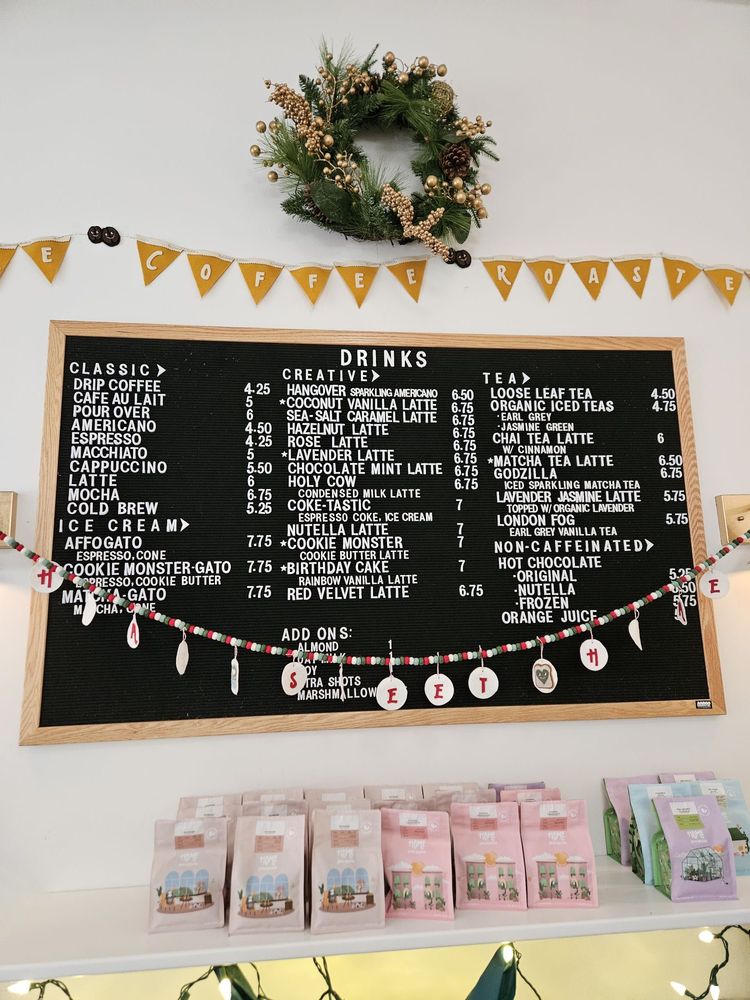 E COFFEE ROASTE
DRINKS
CLASSIC
DRIP COFFEE 4.25
CAFE AU LAIT 5
POUR OVER 6
AMERICANO 4.50
ESPRESSO 4.25
MACCHIATO 5
CAPPUCCINO 5.50
LATTE 6
MOCHA 6.75
COLD BREW 5.25
ICE CREAM
AFFOGATO 7.75
ESPRESSO, CONE
COOKIE MONSTER-GATO 7.75
ESPRESSO, COOKIE BUTTER
MATCHA-GATO 7.75
MATCHA, CONE
CREATIVE
HANGOVER SPARKLING AMERICANO 6.50
*COCONUT VANILLA LATTE 6.75
SEA-SALT CARAMEL LATTE 6.75
HAZELNUT LATTE 6.75
ROSE LATTE 6.75
*LAVENDER LATTE 6.75
CHOCOLATE MINT LATTE 6.75
HOLY COW 6.75
CONDENSED MILK LATTE
COKE-TASTIC 7
ESPRESSO COKE, ICE CREAM
NUTELLA LATTE 7
*COOKIE MONSTER 7
COOKIE BUTTER LATTE
*BIRTHDAY CAKE 7
RAINBOW VANILLA LATTE
RED VELVET LATTE 6.75
ADD ONS:
ALMOND 1
TRA SHOTS
MARSHMALLOW
TEA
LOOSE LEAF TEA 4.50
ORGANIC ICED TEAS 4.75
·EARL GREY
·JASMINE GREEN
CHAI TEA LATTE 6
W/ CINNAMON
*MATCHA TEA LATTE 6.50
GODZILLA 6.75
ICED SPARKLING MATCHA TEA
LAVENDER JASMINE LATTE 5.75
TOPPED W/ ORGANIC LAVENDER
LONDON FOG 5.75
EARL GREY VANILLA TEA
NON-CAFFEINATED
HOT CHOCOLATE
·ORIGINAL 5.25
·NUTELLA
·FROZEN 5.75
ORANGE JUICE
H A S E E T H E